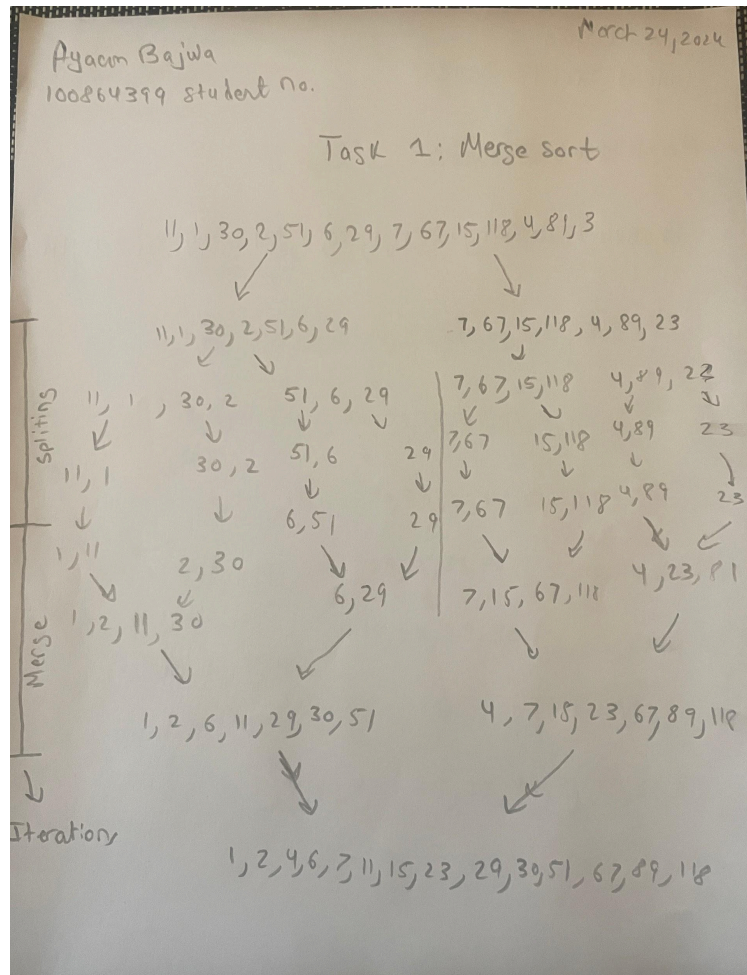 March 24, 2024
Ayaan Bajwa
100864399 student no.
Task 1: Merge sort
11, 1, 30, 2, 51, 6, 29, 7, 67, 15, 118, 4, 81, 3
11, 1, 30, 2, 51, 6, 29
7, 67, 15, 118, 4, 89, 23
spliting
11, 1, 30, 2
51, 6, 29
7, 67, 15, 118
4, 89, 23
11, 1
30, 2
51, 6
29
7, 67
15, 118
4, 89
23
1, 11
2, 30
6, 51
29
7, 67
15, 118
4, 89
23
Merge
1, 2, 11, 30
6, 29
7, 15, 67, 118
4, 23, 81
1, 2, 6, 11, 29, 30, 51
4, 7, 15, 23, 67, 89, 118
Iterations
1, 2, 4, 6, 7, 11, 15, 23, 29, 30, 51, 67, 89, 118